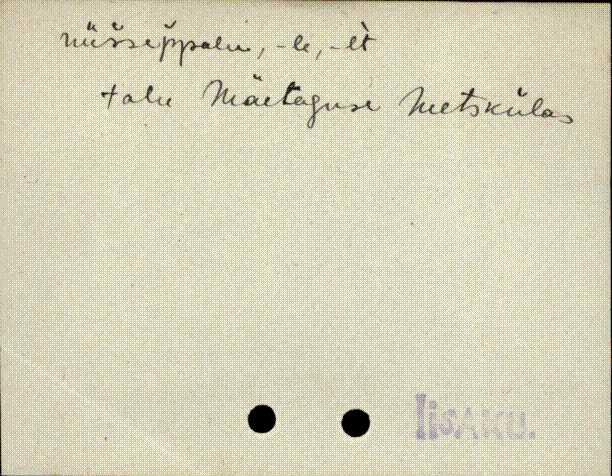 nüsseppalu, -le, -lt
talu Mäetaguse Metskülas
Iisaku.